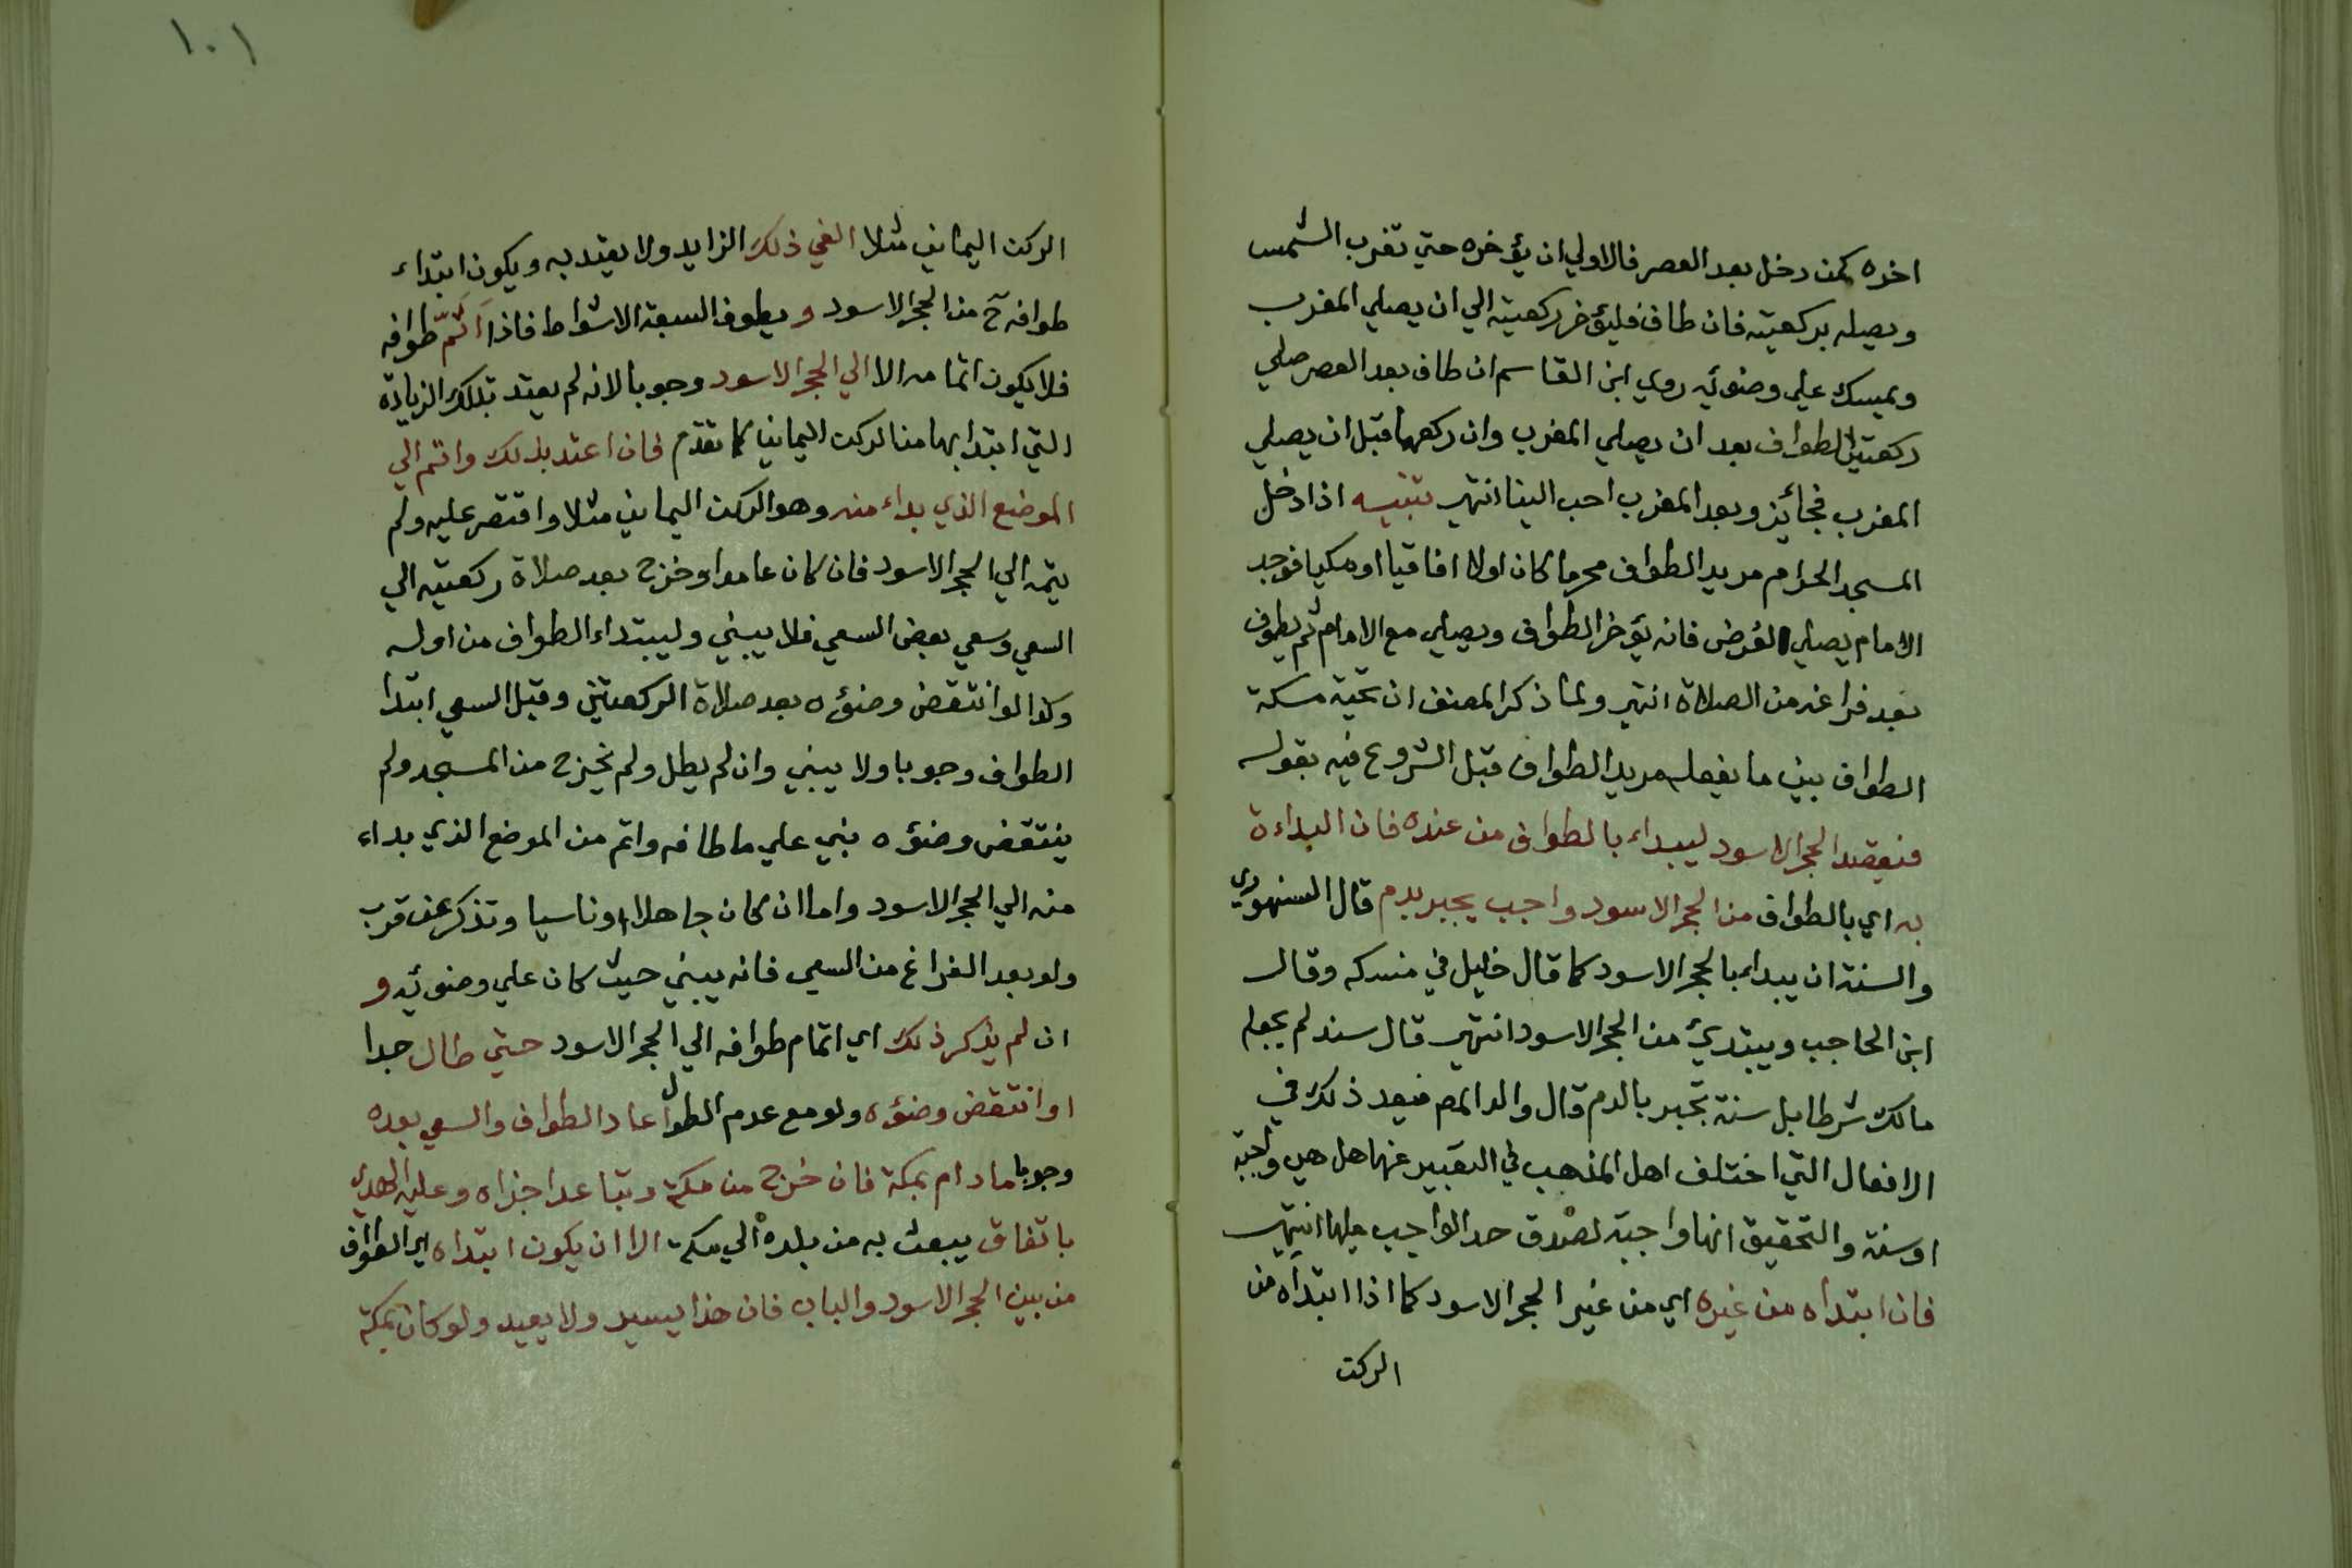 اخره كمن دخل بعد العصر فالاولي ان يؤخره حتي تغرب الشمس
ويصيله بركعتيه فان طاف فليؤخر ركعتيه الي ان يصلي المغرب
ويمسك علي وضوئه روي ابن القاسم ان طاف بعد العصر صلي
ركعتي الطواف بعد ان يصلي المغرب وان ركعهما قبل ان يصلي
المغرب فجائز وبعد المغرب احب الينا انتهي تنبيه اذا دخل
المسجد الحرام مريد الطواف محرما كان اولا افاقيا او مكيا فوجد
الامام يصلي الفرض فانه يؤخر الطواف ويصلي مع الامام ثم يطوف
بعد فراغه من الصلاة انتهي ولما ذكر المصنف ان تحية مكة
الطواف بين ما يفعله مريد الطواف قبل الشروع فيه بقوله
فيقصد الحجر الاسود ليبداء بالطواف من عنده فان البداءة
به اي بالطواف من الحجر الاسود واجب يجبر بدم قال السنهوري
والسنة ان يبداء بالحجر الاسود كما قال خليل في منسكه وقال
ابن الحاجب ويبتدئ من الحجر الاسود انتهي قال سند لم يجعله
مالك شرطا بل سنة تجبر بالدم قال والد المص فيعد ذلك في
الافعال التي اختلف اهل المذهب في التعبير عنها هل هي واجبة
او سنة والتحقيق انها واجبة لصدق حد الواجب عليها انتهي
فان ابتداه من غيره اي من غير الحجر الاسود كما اذا ابتداه من
الركن
١٠١
الركن اليماني مثلا الغي ذلك الزايد ولا يعتد به ويكون ابتداء
طوافه ح من الحجر الاسود ويطوف السبعة الاشواط فاذا اَتَمّ طوافه
فلا يكون اتمامه الا الي الحجر الاسود وجوبا لانه لم يعتد بتلك الزيادة
التي ابتدا بها من الركن اليماني كما تقدم فان اعتد بذلك واتم الي
الموضع الذي بداء منه وهو الركن اليماني مثلا واقتصر عليه ولم
يتمه الي الحجر الاسود فان كان عامدا وخرج بعد صلاة ركعتيه الي
السعي وسعي بعض السعي فلا يبني وليبتداء الطواف من اوله
وكذا لو انتقض وضوءه بعد صلاة الركعتين وقبل السعي ابتدا
الطواف وجوبا ولا يبني وان لم يطل ولم يخرج من المسجد ولم
ينتقض وضوءه بني علي ما طافه واتم من الموضع الذي بداء
منه الي الحجر الاسود واما ان كان جاهلا او ناسيا وتذكر عن قرب
ولو بعد الفراغ من السعي فانه يبني حيث كان علي وضوئه و
ان لم يذكر ذلك اي اتمام طوافه الي الحجر الاسود حتي طال جدا
او انتقض وضوءه ولو مع عدم الطول اعاد الطواف والسعي بعده
وجوبا ما دام بمكة فان خرج من مكة وتباعد اجزاه وعليه الهدي
باتفاق يبعث به من بلده الي مكة الا ان يكون ابتداه اي الطواف
من بين الحجر الاسود والباب فان هذا يسير ولا يعيد ولو كان بمكة